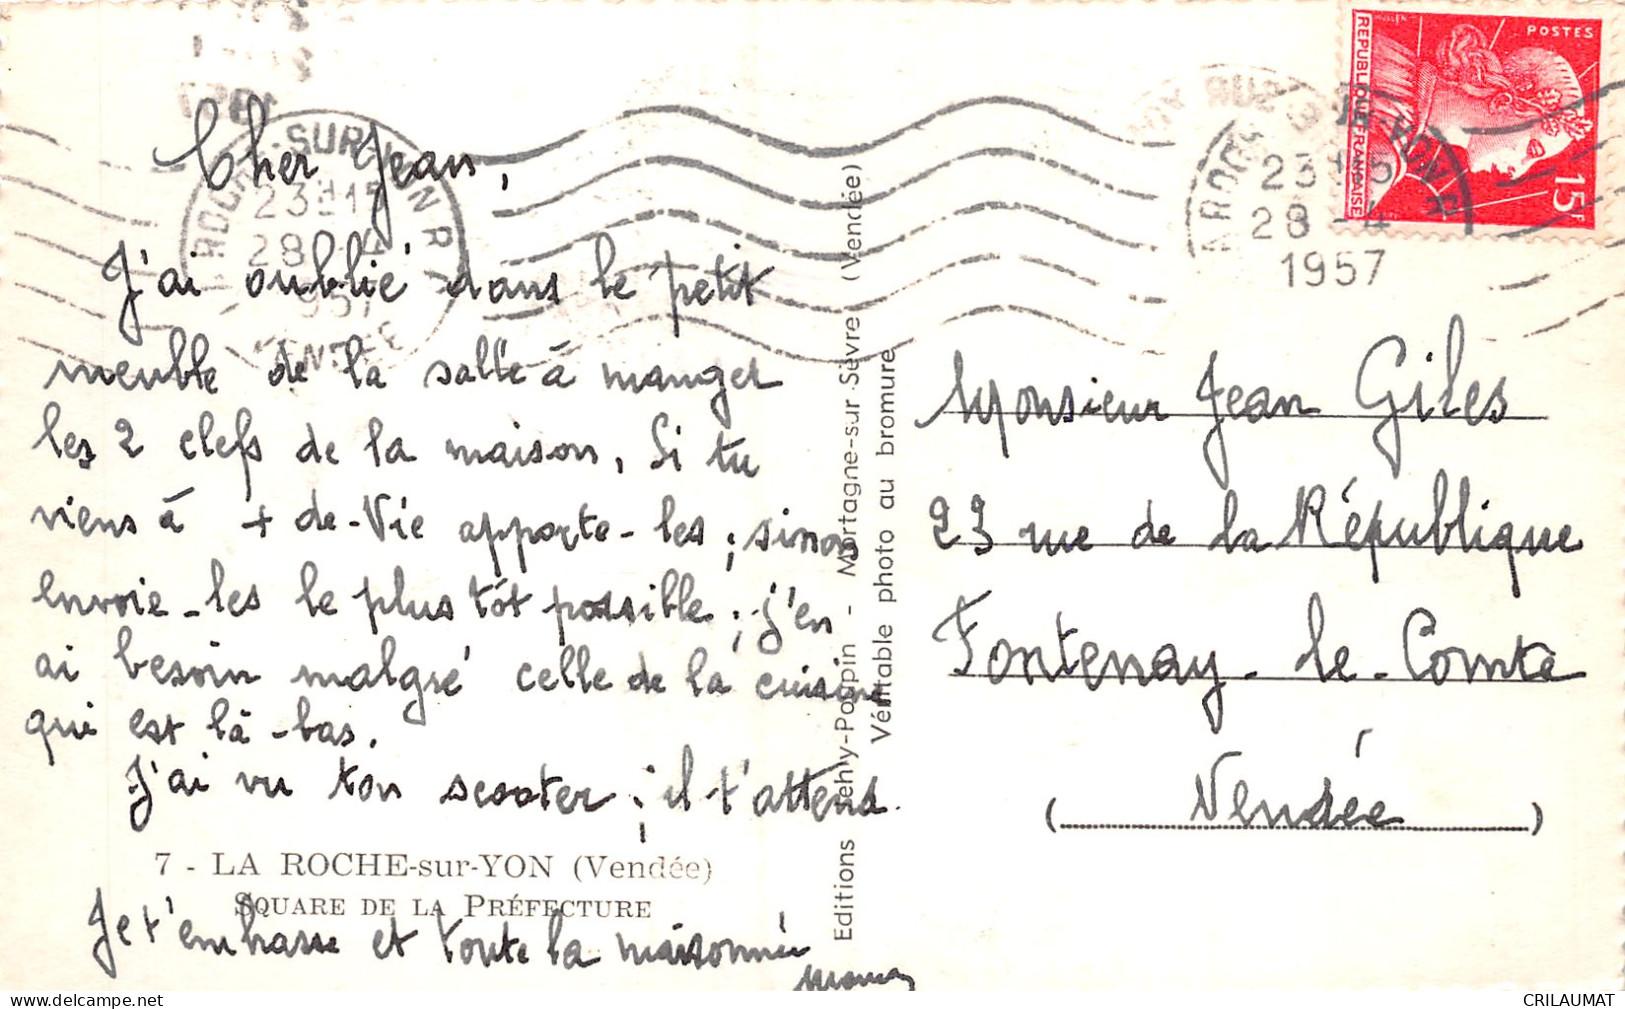 Cher Jean,
J'ai oublié dans le petit
meuble de la salle à manger
les 2 clefs de la maison. Si tu
viens à + de-Vie apporte-les ; sinon
envoie-les le plus tôt possible ; j'en
ai besoin malgré celle de la cuisine
qui est là-bas.
J'ai vu ton scooter ; il t'attend.
7 - LA ROCHE-sur-YON (Vendée)
SQUARE DE LA PRÉFECTURE
Je t'embrasse et toute la maisonnée
Editions Jehly-Poupin - Mortagne-sur-Sèvre (Vendée)
Véritable photo au bromure
POSTES
REPUBLIQUE FRANÇAISE
MULLER
15F
LA ROCHE-SUR-YON R.P.
23H15
28-4
1957
VENDEE
LA ROCHE-SUR-YON R.P.
23H15
28-4
1957
Monsieur Jean Giles
23 rue de la République
Fontenay-le-Comte
(Vendée)
www.delcampe.net
CRILAUMAT